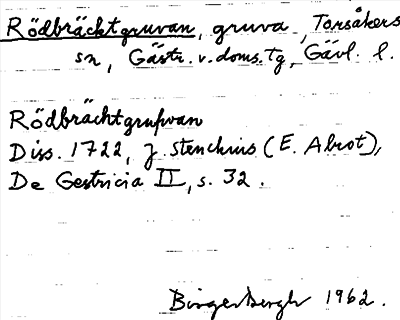 Rödbräcktgruvan, gruva, Torsåkers
sn, Gästr. v. doms. tg, Gävl. l.
Rödbrächtgrufwan
Diss. 1722, J. Stenchius (E. Alrot),
De Gestricia II, s. 32.
Birger Bergh 1962.